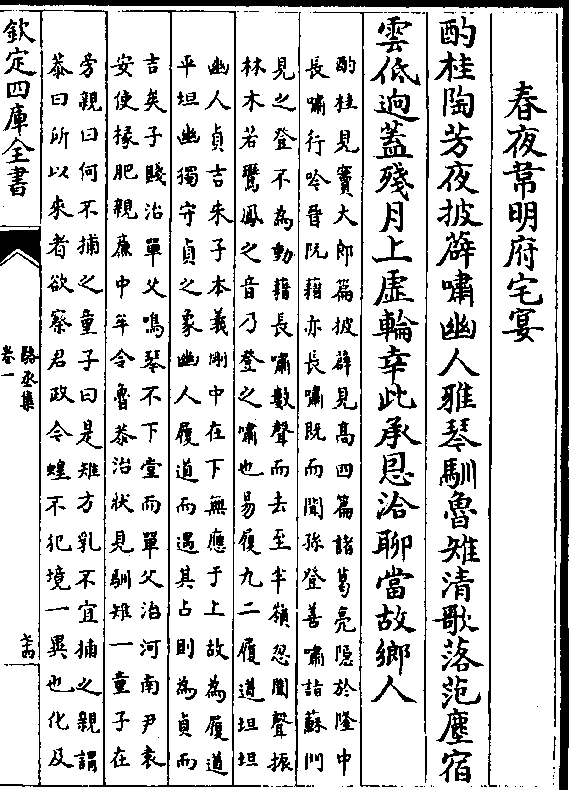 春夜韋明府宅宴
酌桂陶芳夜披薜嘯幽人雅琴馴魯雉清歌落范塵宿
雲低迥蓋殘月上虛輪幸此承恩洽聊當故鄉人
酌桂見竇大郎篇披薜見高四篇諸葛亮隱於隆中
長嘯行吟晉阮籍亦長嘯既而聞孫登善嘯詣蘇門
見之登不為動籍長嘯數聲而去至半嶺忽聞聲振
林木若鸞鳳之音乃登之嘯也易履九二履道坦坦
幽人貞吉朱子本義剛中在下無應于上故為履道
平坦幽獨守貞之象幽人履道而遇其占則為貞而
吉矣子賤治單父鳴琴不下堂而單父治河南尹袁
安使掾肥親廉中牟令魯恭治狀見馴雉一童子在
旁親曰何不捕之童子曰是雉方乳不宜捕之親謂
恭曰所以來者欲察君政令蝗不犯境一異也化及
欽定四庫全書
駱丞集
卷一